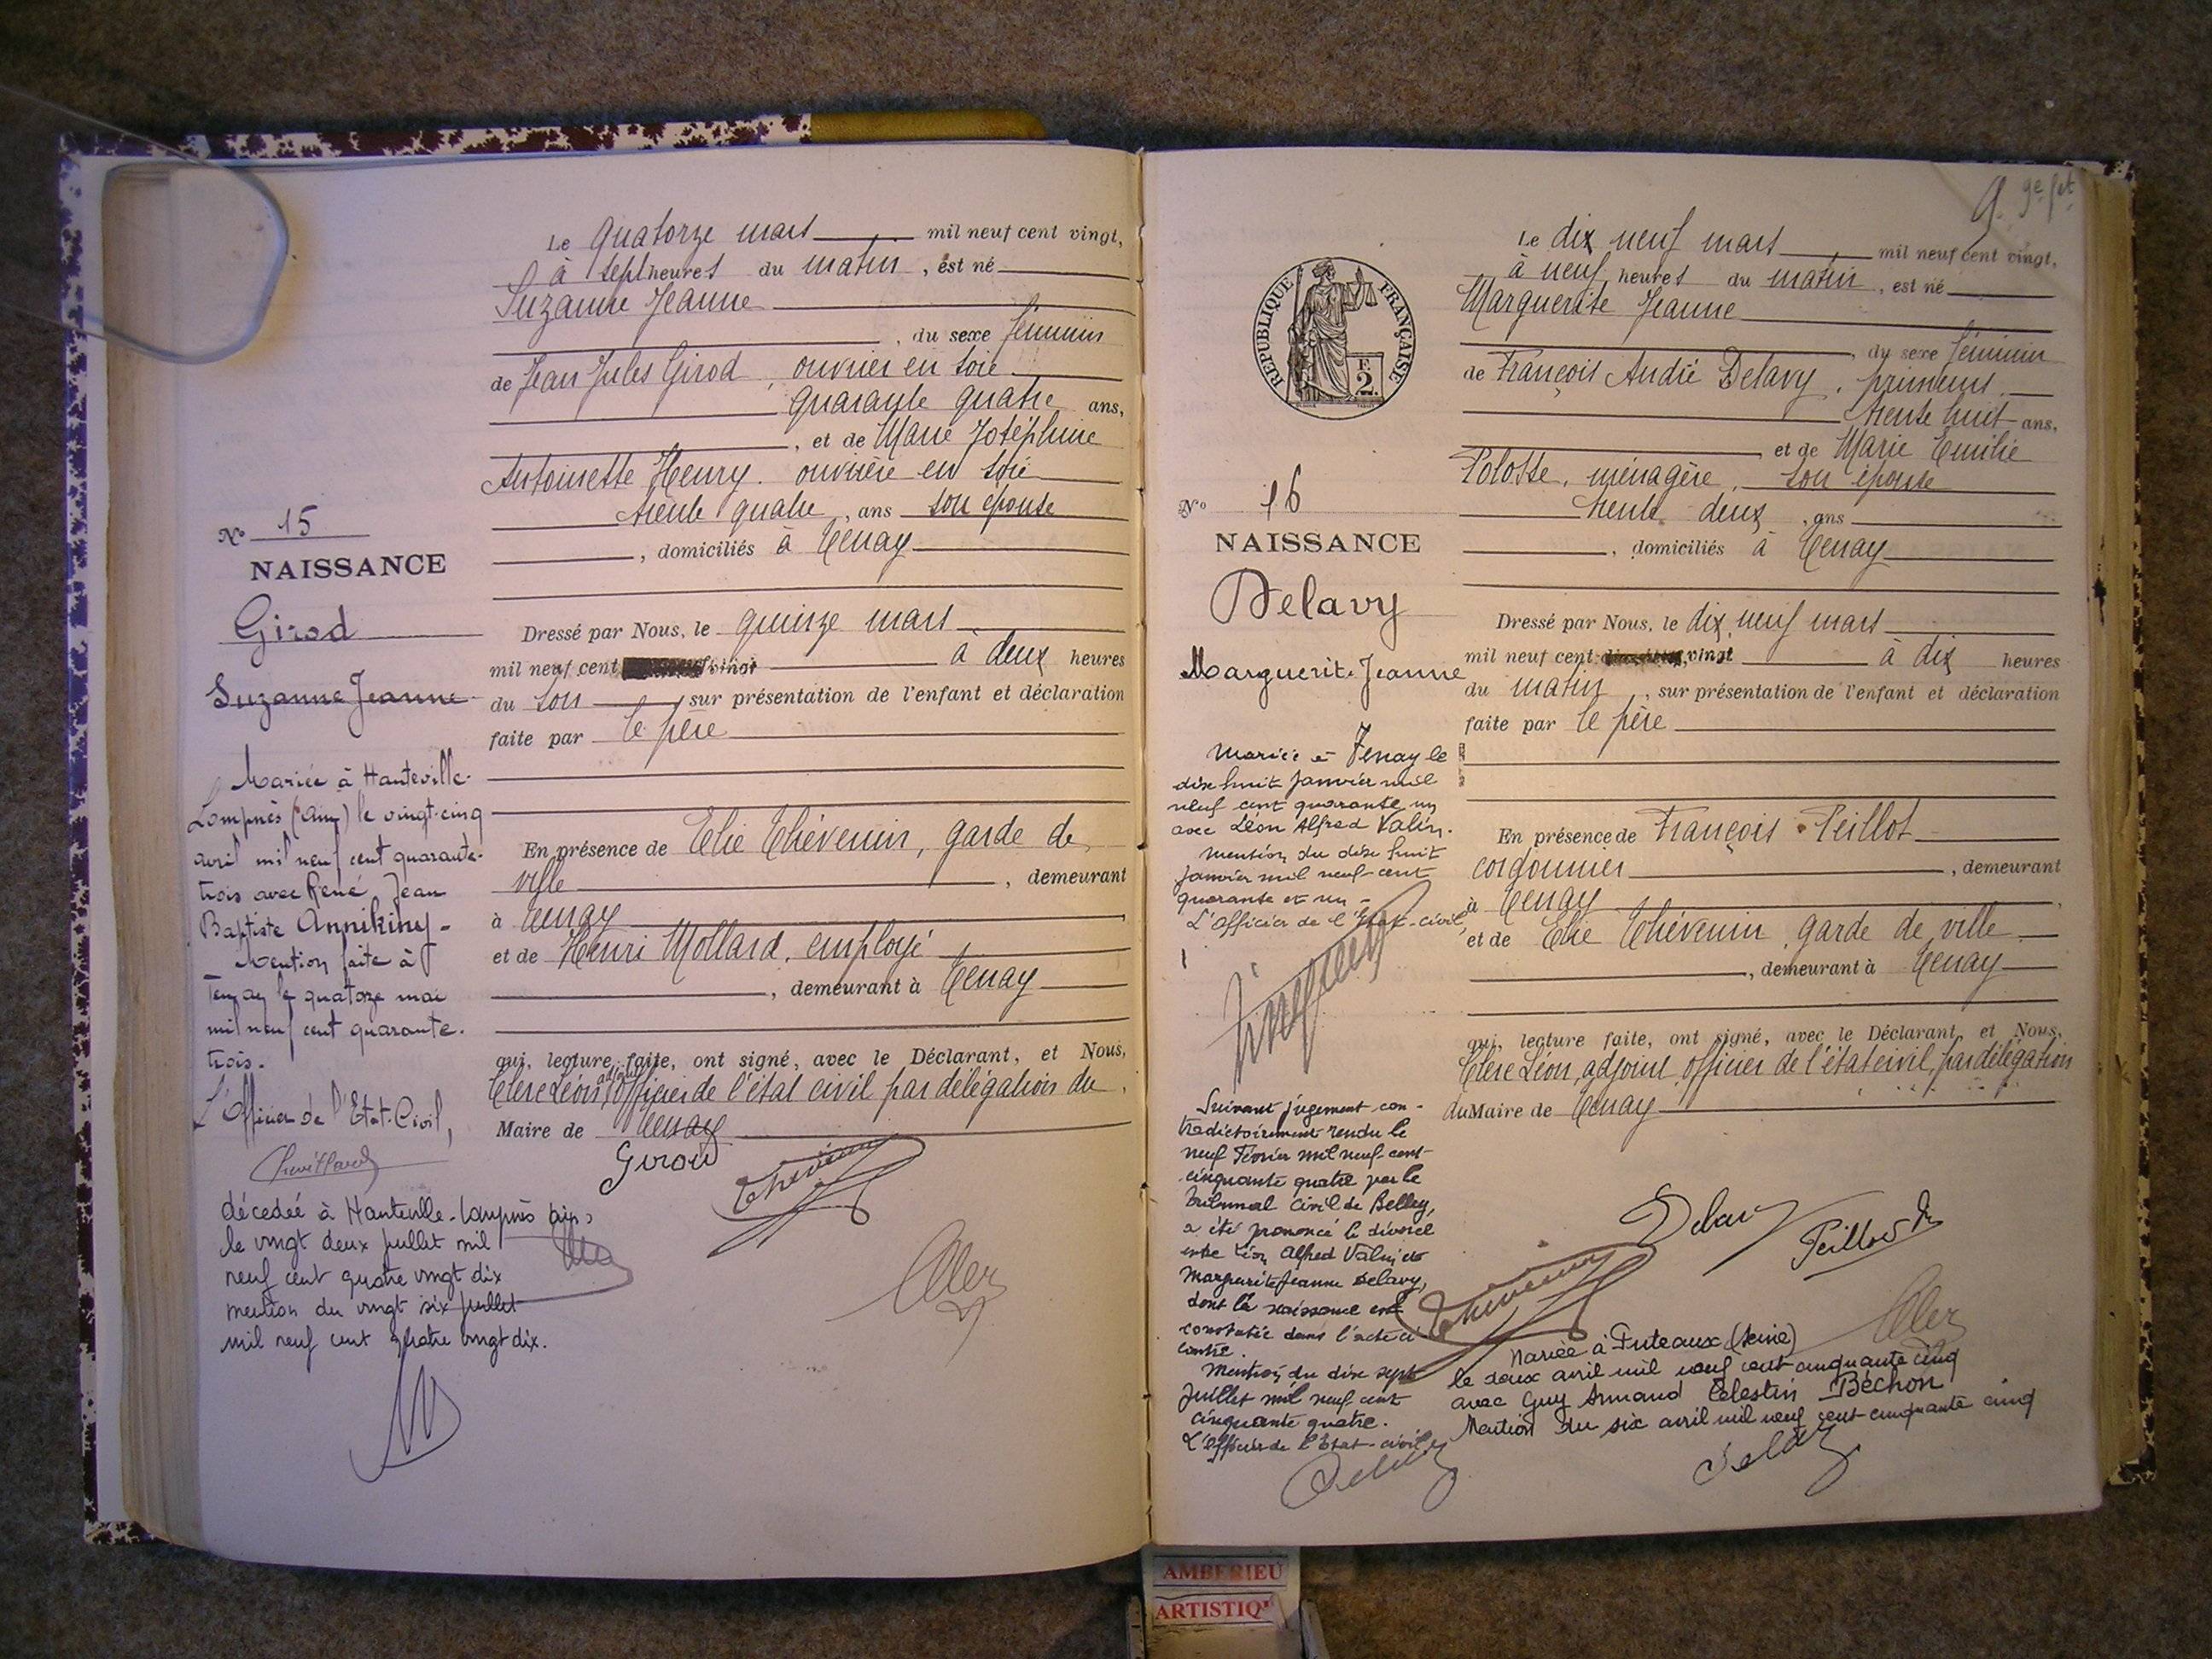 Le quatorze mars mil neuf cent vingt,
à sept heures du matin, est né
Suzanne Jeanne
, du sexe féminin
de Jean Jules Girod, ouvrier en soie
quarante quatre ans,
, et de Marie Joséphine
Antoinette Henry. ouvrière en soie
trente quatre, ans son épouse
, domiciliés à Tenay
No 15
NAISSANCE
Girod
Suzanne Jeanne
Dressé par Nous, le quinze mars
mil neuf cent vingt à deux heures
du soir sur présentation de l'enfant et déclaration
faite par le père
En présence de Elie Thévenin, garde de
ville, demeurant
à Tenay
et de Henri Mollard, employé
, demeurant à Tenay
qui, lecture faite, ont signé, avec le Déclarant, et Nous,
Clerc Léon, adjoint officier de l'état civil par délégation du
Maire de Tenay
Girod
Thévenin
Mariée à Hauteville-
Lompnès (Ain) le vingt-cinq
avril mil neuf cent quarante-
trois avec René, Jean
Baptiste Annikiny-
Mention faite à
Tenay le quatorze mai
mil neuf cent quarante-
trois.
L'Officier de l'Etat-Civil,
décedée à Hauteville-Lompnès (Ain)
le vingt deux juillet mil
neuf cent quatre vingt dix
mention du vingt six juillet
mil neuf cent quatre vingt dix.
9 9e fet
Le dix neuf mars mil neuf cent vingt,
à neuf heures du matin, est né
Marguerite Jeanne
, du sexe féminin
de François André Delavy, primeurs
trente huit ans,
et de Marie Emilie
Polosse, ménagère, son épouse
trente deux, ans
, domiciliés à Tenay
RÉPUBLIQUE FRANÇAISE
F.
2.
No 16
NAISSANCE
Delavy
Marguerite Jeanne
Dressé par Nous, le dix neuf mars
mil neuf cent vingt à dix heures
du matin, sur présentation de l'enfant et déclaration
faite par le père
En présence de François Peillot
cordonnier, demeurant
à Tenay
et de Elie Thévenin, garde de ville
, demeurant à Tenay
qui, lecture faite, ont signé, avec le Déclarant, et Nous,
Clerc Léon, adjoint officier de l'état civil, par délégation
du Maire de Tenay
Mariée à Tenay le
dix huit Janvier mil
neuf cent quarante un
avec Léon Alfred Valin.
Mention du dix huit
Janvier mil neuf cent
quarante et un -
L'Officier de l'Etat-civil,
Suivant jugement con-
tradictoirement rendu le
neuf Février mil neuf-cent-
cinquante quatre par le
Tribunal Civil de Belley,
a été prononcé le divorce
entre Léon Alfred Valin et
Marguerite Jeanne Delavy,
dont la naissance est
constatée dans l'acte ci
contre.
Mention du dix sept
Juillet mil neuf cent
cinquante quatre.
L'Officier de l'Etat-civil,
Delavy
Peillot
Thévenin
Mariée à Puteaux (Seine)
le deux avril mil neuf cent cinquante cinq
avec Guy Armand Celestin Béchon
Mention du six avril mil neuf cent cinquante cinq
AMBERIEU
ARTISTIQ'